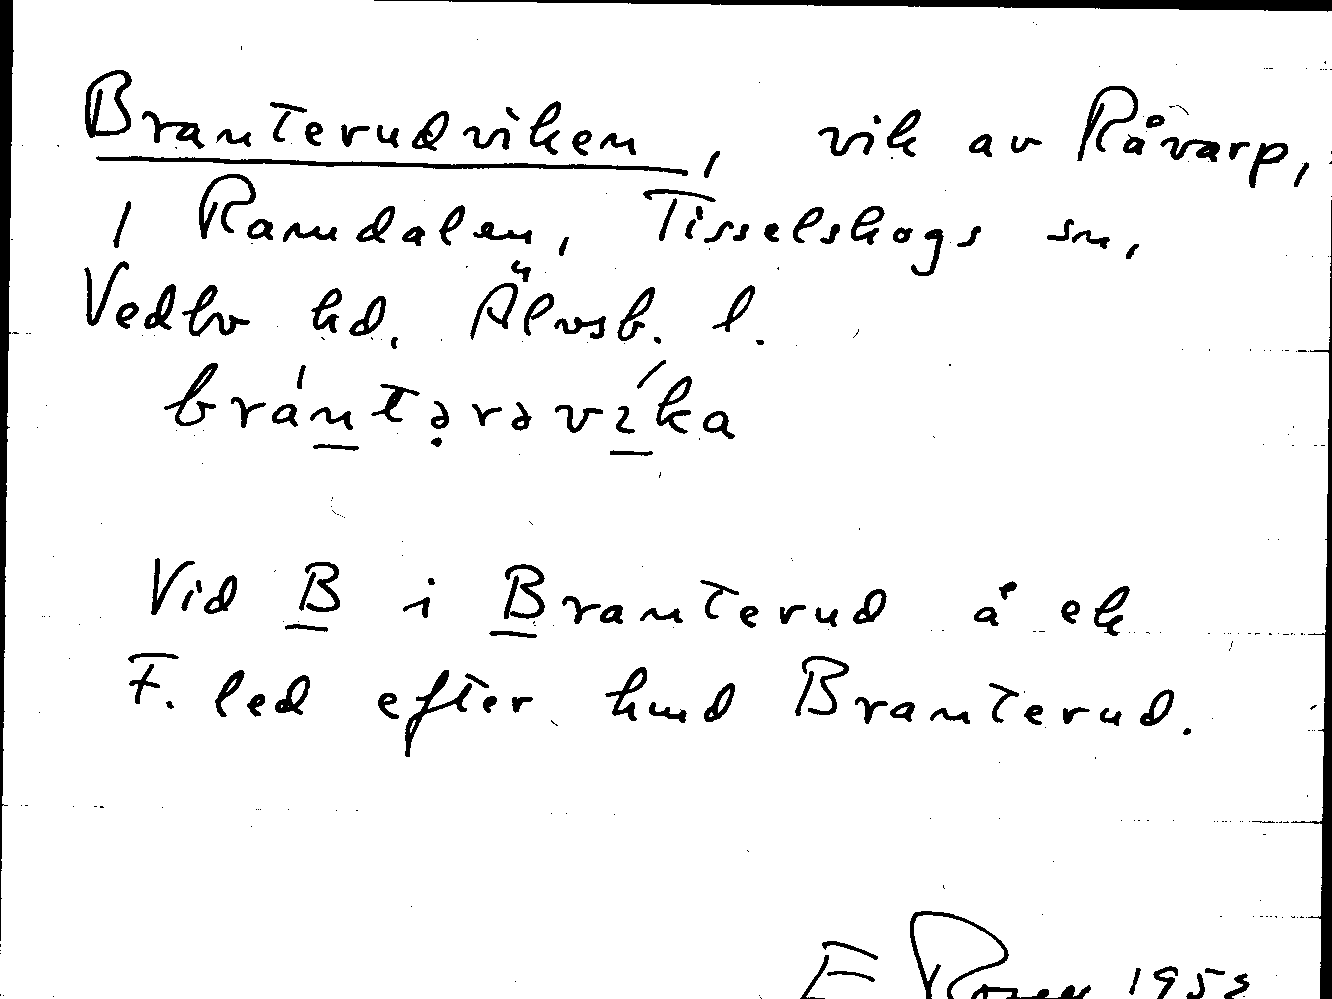 Branterudviken, vik av Råvarp,
i Ramdalen, Tisselskogs sn,
Vedbo hd. Älvsb. l.
brántərəvíka
Vid B i Branterud å ek
F. led efter hmd Branterud.
E 1953